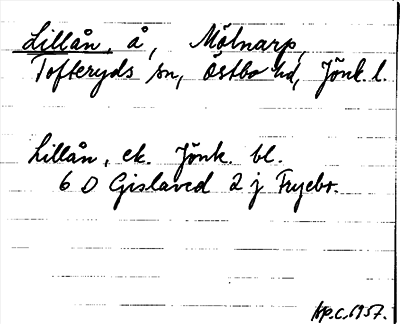 Lillån, å, Mölnarp,
Tofteryds sn, Östbo hd, Jönk. l.
Lillån, ek. Jönk. bl.
6 D Gislaved 2 j Fryebr.
Hp.C.1957.